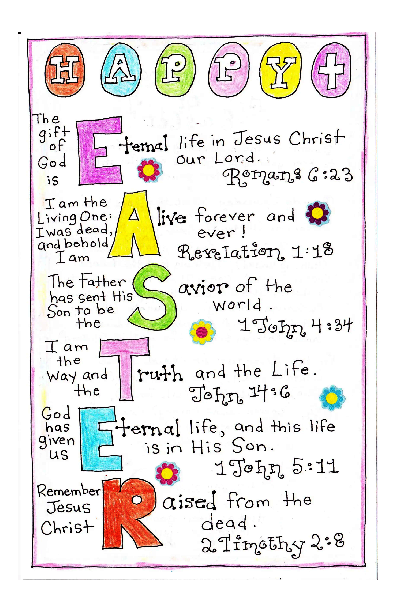 HAPPY
The gift of God is Eternal life in Jesus Christ
our Lord.
Romans 6:23
I am the Living One: I was dead, and behold I am Alive forever and
ever!
Revelation 1:18
The Father has sent His Son to be the Savior of the
world.
1 John 4:34
I am the way and the Truth and the Life.
John 14:6
God has given us Eternal life, and this life
is in His Son.
1 John 5:11
Remember Jesus Christ Raised from the
dead.
2 Timothy 2:8